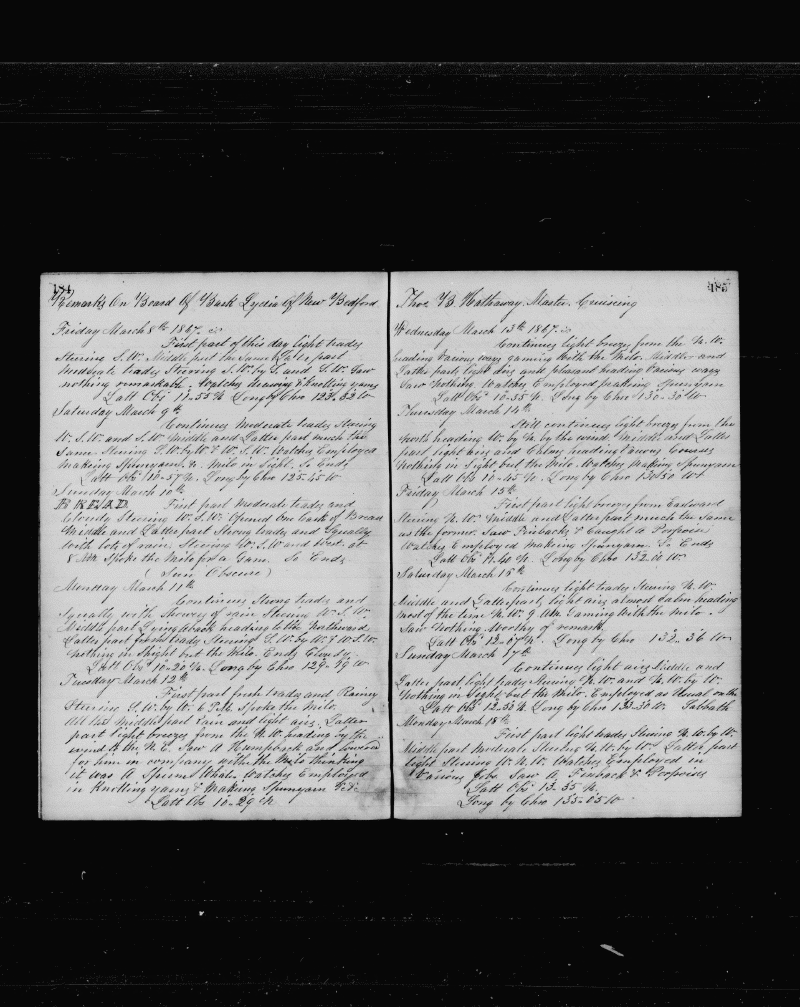 184
Remarks On Board Of Bark Lydia Of New Bedford
Friday March 8th 1867.
First part of this day light trades
Steering S.W. Middle part the Same Latter part
moderate trades Steering S.W. by S. and S.W. Saw
nothing remarkable. Watches drawing & Knotting yarns
Latt Obs 11-55 N. Long by Chro
Saturday March 9th
Continues Moderate trades Steering
W.S.W. and S.W. Middle and Latter part much the
Same Steering S.W. by W & W.S.W. Watches Employed
Making Spunyarn &. Milo in Sight. So Ends
Latt Obs 10-57 N. Long by Chro 125-45 W
Sunday March 10th
BREAD First part Moderate trades and
Cloudy Steering W.S.W. Opened One Cask of Bread
Middle and Latter part Strong trades and Squally
with lots of rain Steering W.S.W and West. at
8 AM Spoke the Milo for a Gam. So Ends
(Sun Obscure)
Monday March 11th
Continues Strong trades and
Squally with Showers of rain Steering W.S.W.
Middle part Lying Aback heading to the Northward
Latter part fresh trades Steering S.W. by W. & W.S.W.
Nothing in Sight but the Milo. Ends Cloudy.
Latt Obs 10-20 N. Long by Chro 129-49 W
Tuesday March 12th
First part fresh trades and Rainy
Steering S.W. by W. 6 P.M. Spoke the Milo.
Middle part rain and light airs. Latter
part light breezes from the N.W heading by the
wind to the N.E. Saw A Humpback and lowered
for him in company with the Milo thinking
it was A Sperm Whale Watches Employed
in Knotting yarns & Making Spunyarn &c.
Latt Obs 10-29 N
185
Thos. B. Hathaway Master Cruising
Wednesday March 13th 1867.
Continues light breezes from the N.W.
heading Various ways gaming with the Milo. Middle and
Latter part light airs and pleasant heading Various ways
Saw Nothing Watches Employed Spunyarn
Latt Obs 10-35 N. Long by Chro 130-30 W
Thursday March 14th
Still continues light breezes from the
North heading W. by N. by the wind. Middle and Latter
part light airs and Calms heading Various Courses
Nothing in Sight but the Milo. Watches Making Spunyarn
Latt Obs 10-45 N. Long by Chro 130-50 W
Friday March 15th
First part light breezes from Eastward
Steering N.W. Middle and Latter part much the Same
as the former. Saw Finbacks & Caught A Porpoise
Watches Employed Making Spunyarn. So Ends
Latt Obs 11-40 N. Long by Chro 132-00 W.
Saturday March 16th
Continues light trades Steering N.W.
Middle and Latter part light airs almost Calm heading
most of the time N.W. 9 AM Gaming With the Milo.
Saw Nothing Worthy of remark.
Latt Obs 12-07 N. Long by Chro 132-36 W
Sunday March 17th
Continues light airs Middle and
Latter part light trades Steering N.W. and N.W. by W.
Nothing in Sight but the Milo. Employed as Usual on the
Latt Obs 12-50 N Long by Chro 133-30 W. Sabbath
Monday March 18th
First part light trades Steering N.W. by W.
Middle part Moderate Steering N.W. by W Latter part
light Steering W.N.W. Watches Employed in
Various Jobs Saw A Finback & Porpoises
Latt Obs 13-35 N.
Long by Chro 135-05 W